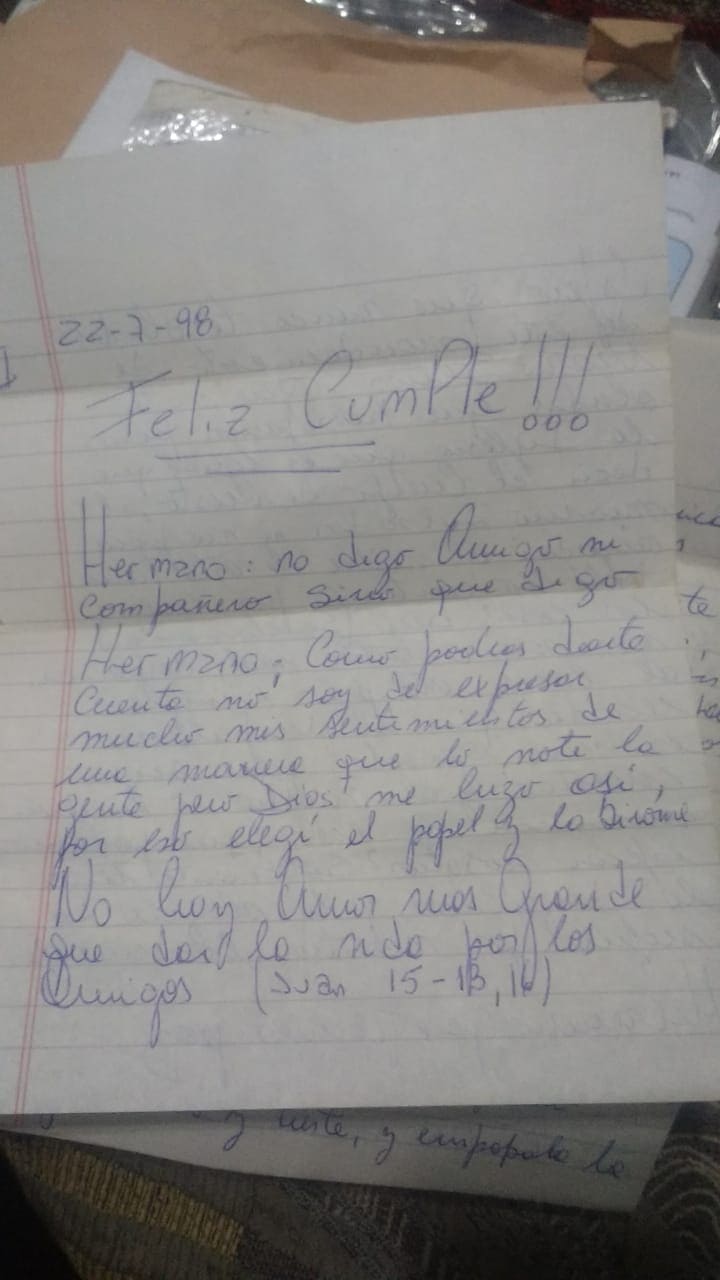 22-7-98
1
Feliz Cumple!!!
Hermano: no digo Amigo ni
compañero sino que digo
Hermano; Como podras darte
cuenta no soy de expresar
mucho mis sentimientos de
una manera que lo note la
gente pero Dios me hizo asi,
por eso elegí el papel y la birome
No hay Amor mas Grande
que dar la vida por los
Amigos (Juan 15-13,
te
y empapala la